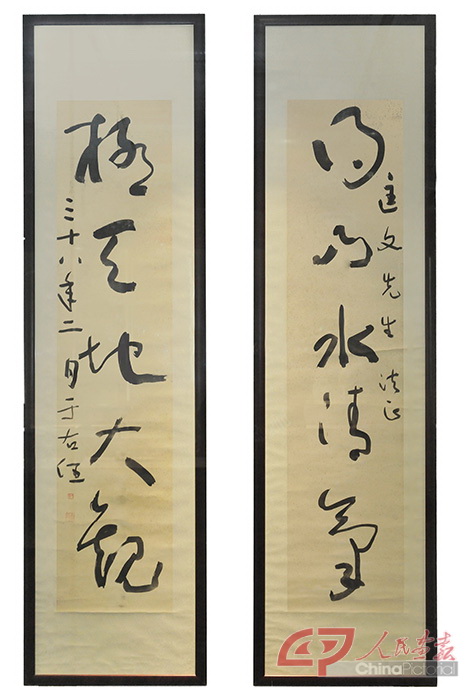 得山水清氣
匡文先生法正
極天地大觀
三十八年二月于右任
人民画报
ChinaPictorial